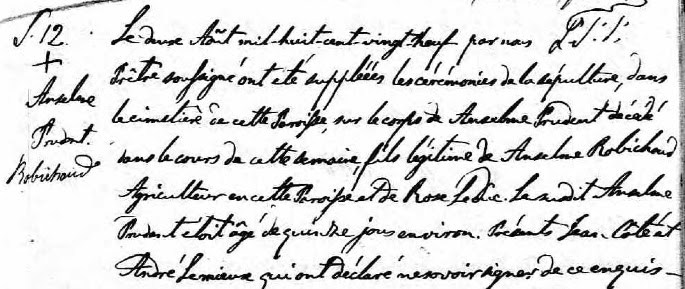 S. 12.
+
Anselme
Prudent.
Robichaud
Le douze Août mil-huit-cent-vingt-neuf par nous P.T.S.
Prêtre soussigné ont été suppléées les cérémonies de la sépulture, dans
le cimetière de cette Paroisse, sur le corps de Anselme Prudent décédé
dans le cours de cette semaine, fils légitime de Anselme Robichaud
Agriculteur en cette Paroisse et de Rose LeDuc. Le susdit Anselme
Prudent étoit âgé de quinze jours environ. Présents Jean Côté et
André Lemieux qui ont déclaré ne savoir signer de ce enquis –